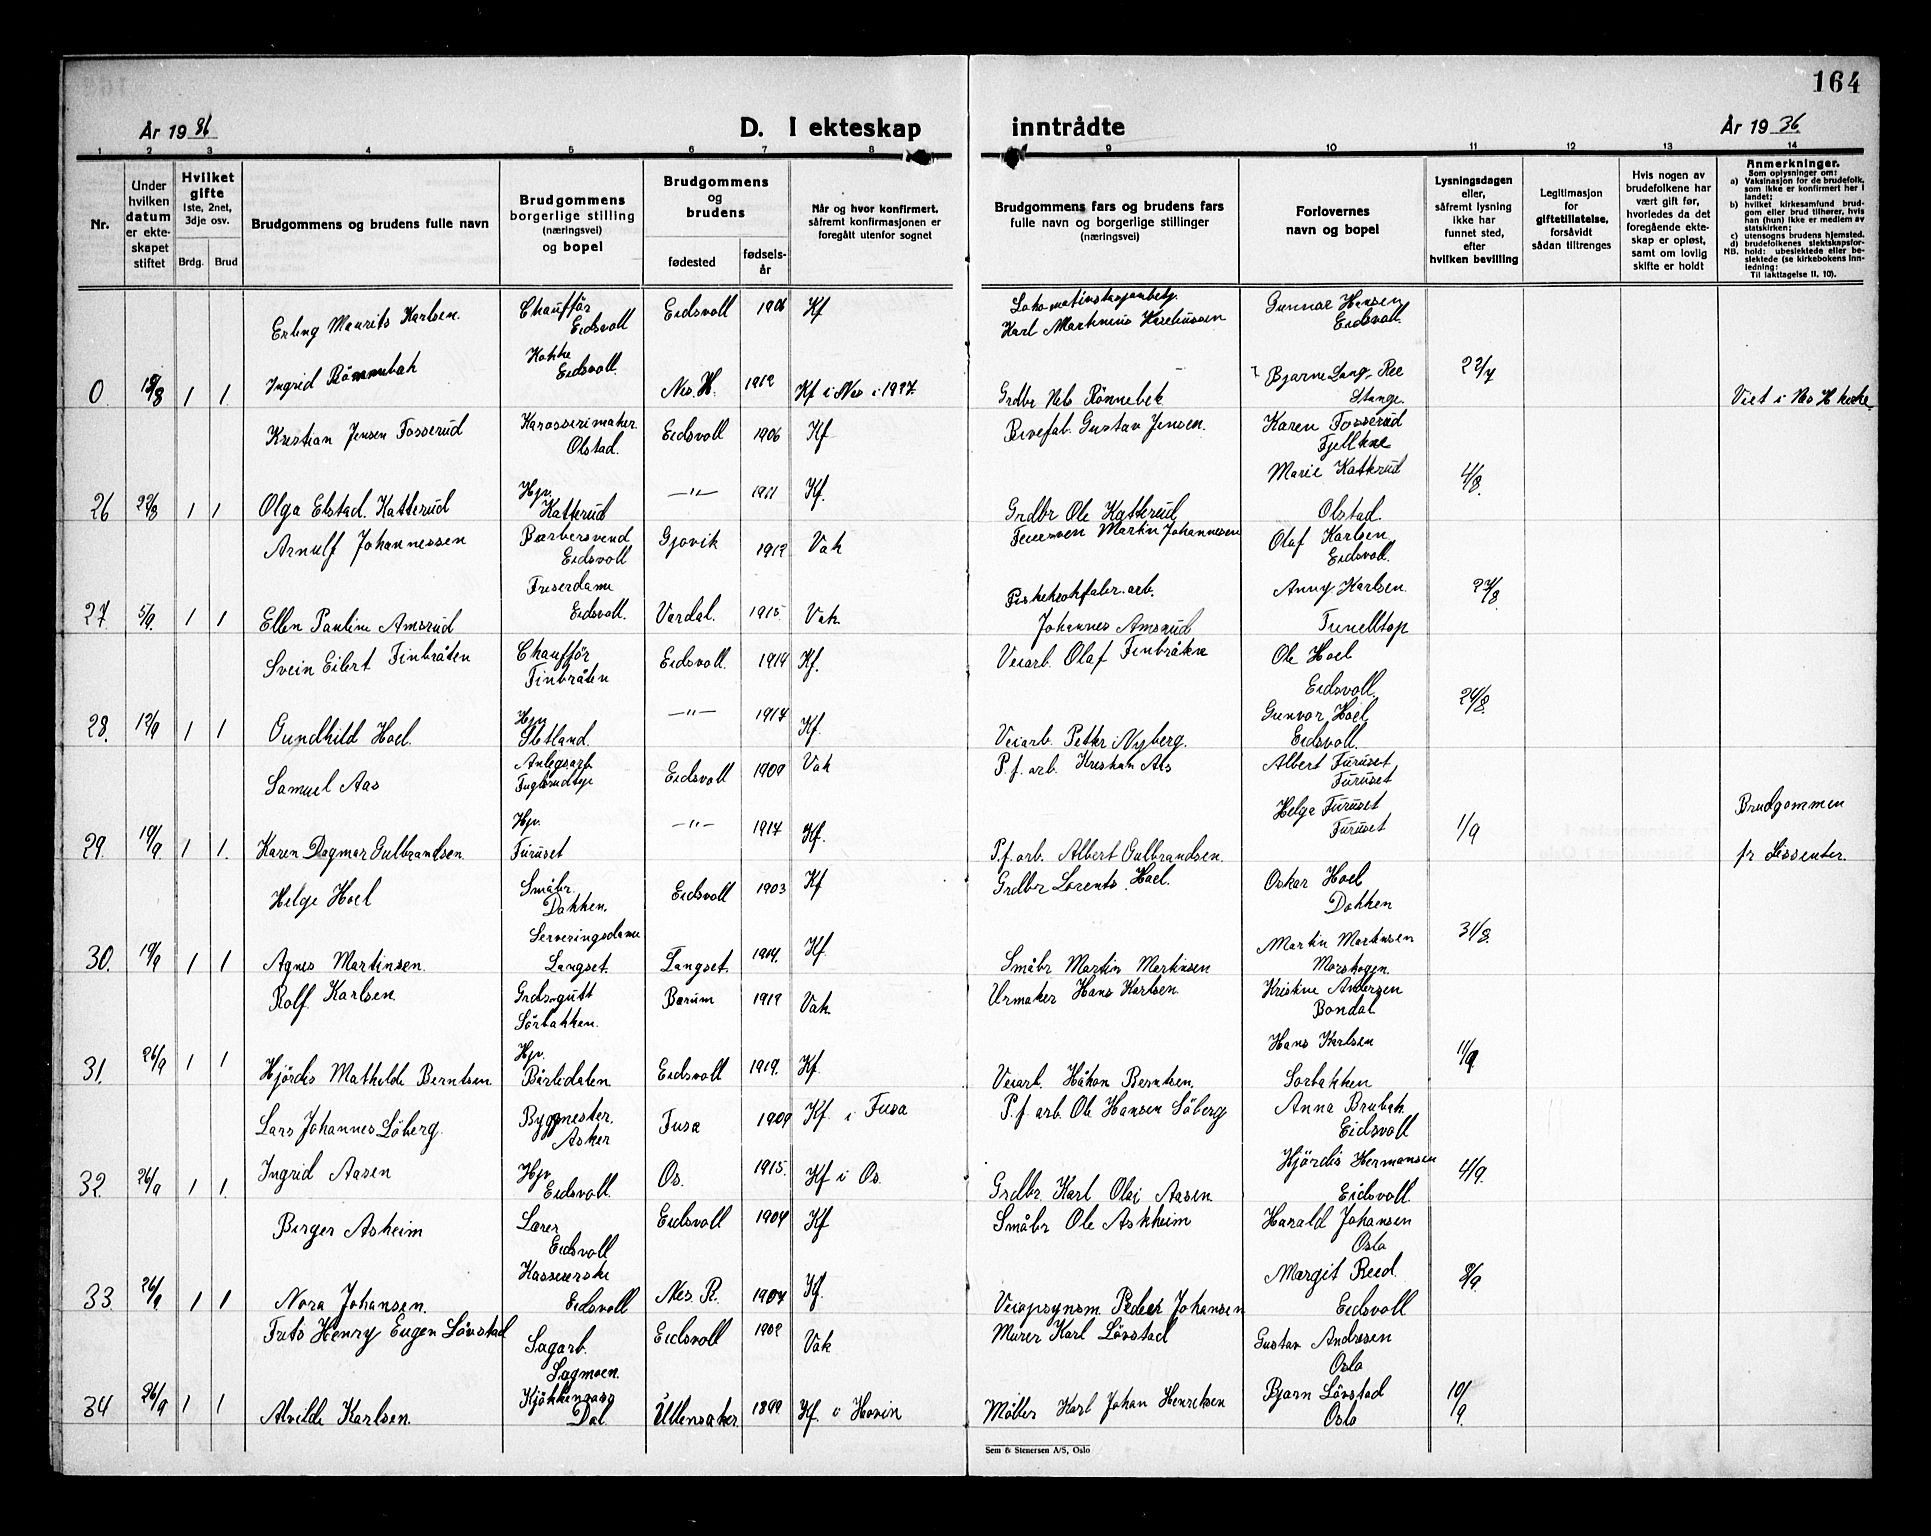 164
År 1936
D. I ekteskap inntrådte
År 1936
1 2 3 4 5 6 7 8 9 10 11 12 13 14
Nr.
Under hvilken datum er ekteskapet stiftet
Hvilket gifte
1ste, 2net, 3dje osv.
Brdg. Brud
Brudgommens og brudens fulle navn
Brudgommens borgerlige stilling (næringsvei) og bopel
Brudgommens og brudens
fødested
fødselsår
Når og hvor konfirmert, såfremt konfirmasjonen er foregått utenfor sognet
Brudgommens fars og brudens fars fulle navn og borgerlige stillinger (næringsvei)
Forlovernes navn og bopel
Lysningsdagen eller, såfremt lysning ikke har funnet sted, efter hvilken bevilling
Legitimasjon for giftetillatelse, forsåvidt sådan tiltrenges
Hvis nogen av brudefolkene har vært gift før, hvorledes da det foregående ekteskap er opløst, samt om lovlig skifte er holdt
Anmerkninger.
Som oplysninger om:
a) Vaksinasjon for de brudefolk, som ikke er konfirmert her i landet;
b) hvilket kirkesamfund brudgom eller brud tilhører, hvis han (hun) ikke er medlem av statskirken;
c) utensogns brudens hjemsted.
d) brudefolkenes slektskapsforhold: ubeslektede eller beslektede (se kirkebokens Innledning:
NB. Til iakttagelse II, 10).
Erling Maurits Karlsen. Chauffør Eidsvoll Eidsvoll 1906 Kf Karl Martinius Gunnar Hansen Eidsvoll.
0 1 1 Ingrid Rønnebek Eidsvoll. Nes. H. 1912 Kf i Nes i 1927. Grdbr Nels Rønnebek Bjarne Lang-Ree Stange. 22/7 Viet i Nes H kirke.
Kristian Jensen Fosserud Karosserimaker Olstad. Eidsvoll 1906 Kf Gustav Jensen. Karen Fosserud
26 22/8 1 1 Olga Elstad Katterud Hjv. Katterud —"— 1911 Kf. Grdbr Ole Katterud Marie Katterud Olstad. 4/8.
Arnulf Johannessen Barbersvend Eidsvoll Gjøvik 1912 Vak Martin Johannesen Olaf Karlsen Eidsvoll.
27. 5/9. 1 1 Ellen Pauline Amsrud Friserdame Eidsvoll. Vardal. 1915. Vak. Johannes Amsrud Anny Karlsen. Tunelltop 27/8
Svein Eilert Finbråten Chauffør Finbråten Eidsvoll. 1914 Kf. Veiarb. Olaf Finbråten Ole Hoel Eidsvoll.
28. 12/9 1 1 Gundhild Hoel. Hjv —"— 1917 Kf. Veiarb. Petter Nyberg. Gunvor Hoel Eidsvoll. 29/8.
Samuel Aas Anlegsarb Eidsvoll 1909 Vak P.f. arb. Kristian Aas Albert Furuset Furuset
29. 19/9 1 1. Karen Dagmar Gulbrandsen. Hjv. Furuset —"— 1917 Kf. P.f. arb. Albert Gulbrandsen. Helga Furuset Furuset 1/9 Brudgommen fr Dissenter.
Helge Hoel Småbr. Dokken. Eidsvoll 1903 Kf Grdbr Lorents Hoel. Oskar Hoel Dokken
30. 19/9 1 1 Agnes Martinsen. Serveringsdame Langset. Langset. 1904. Kf. Småbr Martin Martinsen Martin Martinsen Morskogen. 31/8.
Rolf Karlsen. Grdsgutt Sörbakken. Bærum 1912 Vak. Urmaker Hans Karlsen. Kristine Andersen Bondal.
31. 26/9 1 1 Hjördis Mathilde Berntsen Hjv. Bårlidalen Eidsvoll 1919. Kf. Veiarb. Håkon Berntsen. Hans Karlsen Sorbakken 11/9
Lars Johannes Söberg. Byggmester. Asker Fusa 1909 Kf i Fusa P.f. arb. Ole Hansen Söberg Anna Brubak. Eidsvoll
32. 26/9 1 1. Ingrid Aasen Hjv Eidsvoll. Os. 1915. Kf i Os. Grdbr. Karl Olai Aasen Hjördis Hermansen Eidsvoll. 4/9.
Birger Asheim Lærer Eidsvoll Eidsvoll 1904 Kf Småbr Ole Askheim Harald Johansen Oslo
33. 26/9 1 1 Nora Johansen. Kassererske Eidsvoll Nes. R. 1907 Kf. Veiopsynsm. Peder Johansen Margit Reed. Eidsvoll 8/9.
Frits Henry Eugen Lövstad Sagarb. Sagmoen. Eidsvoll 1902 Vak Murer Karl Lövstad Gustav Andresen Oslo
34 26/9 1 1 Alvilde Karlsen. Dal Ullensaker. 1899 Kf. i Hovin Möller Karl Johan Henriksen Bjarn Lövstad Oslo 10/9.
Sem & Stenersen A/S, Oslo